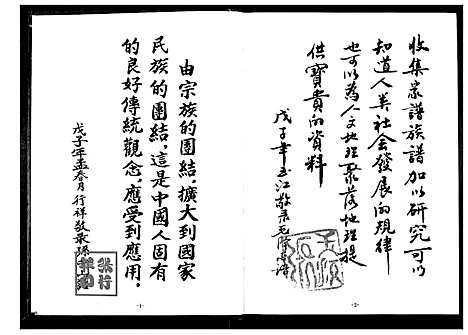 收集家譜族譜加以研究可以
知道人类社会發展的規律
也可以為人文地理聚落地理提
供寶貴的資料
戊子年玉江敬录
由宗族的團結，擴大到國家
民族的團結，這是中國人固有
的良好傳統觀念，應受到應用。
戊子年孟春月行祥敬录
-2-
-1-